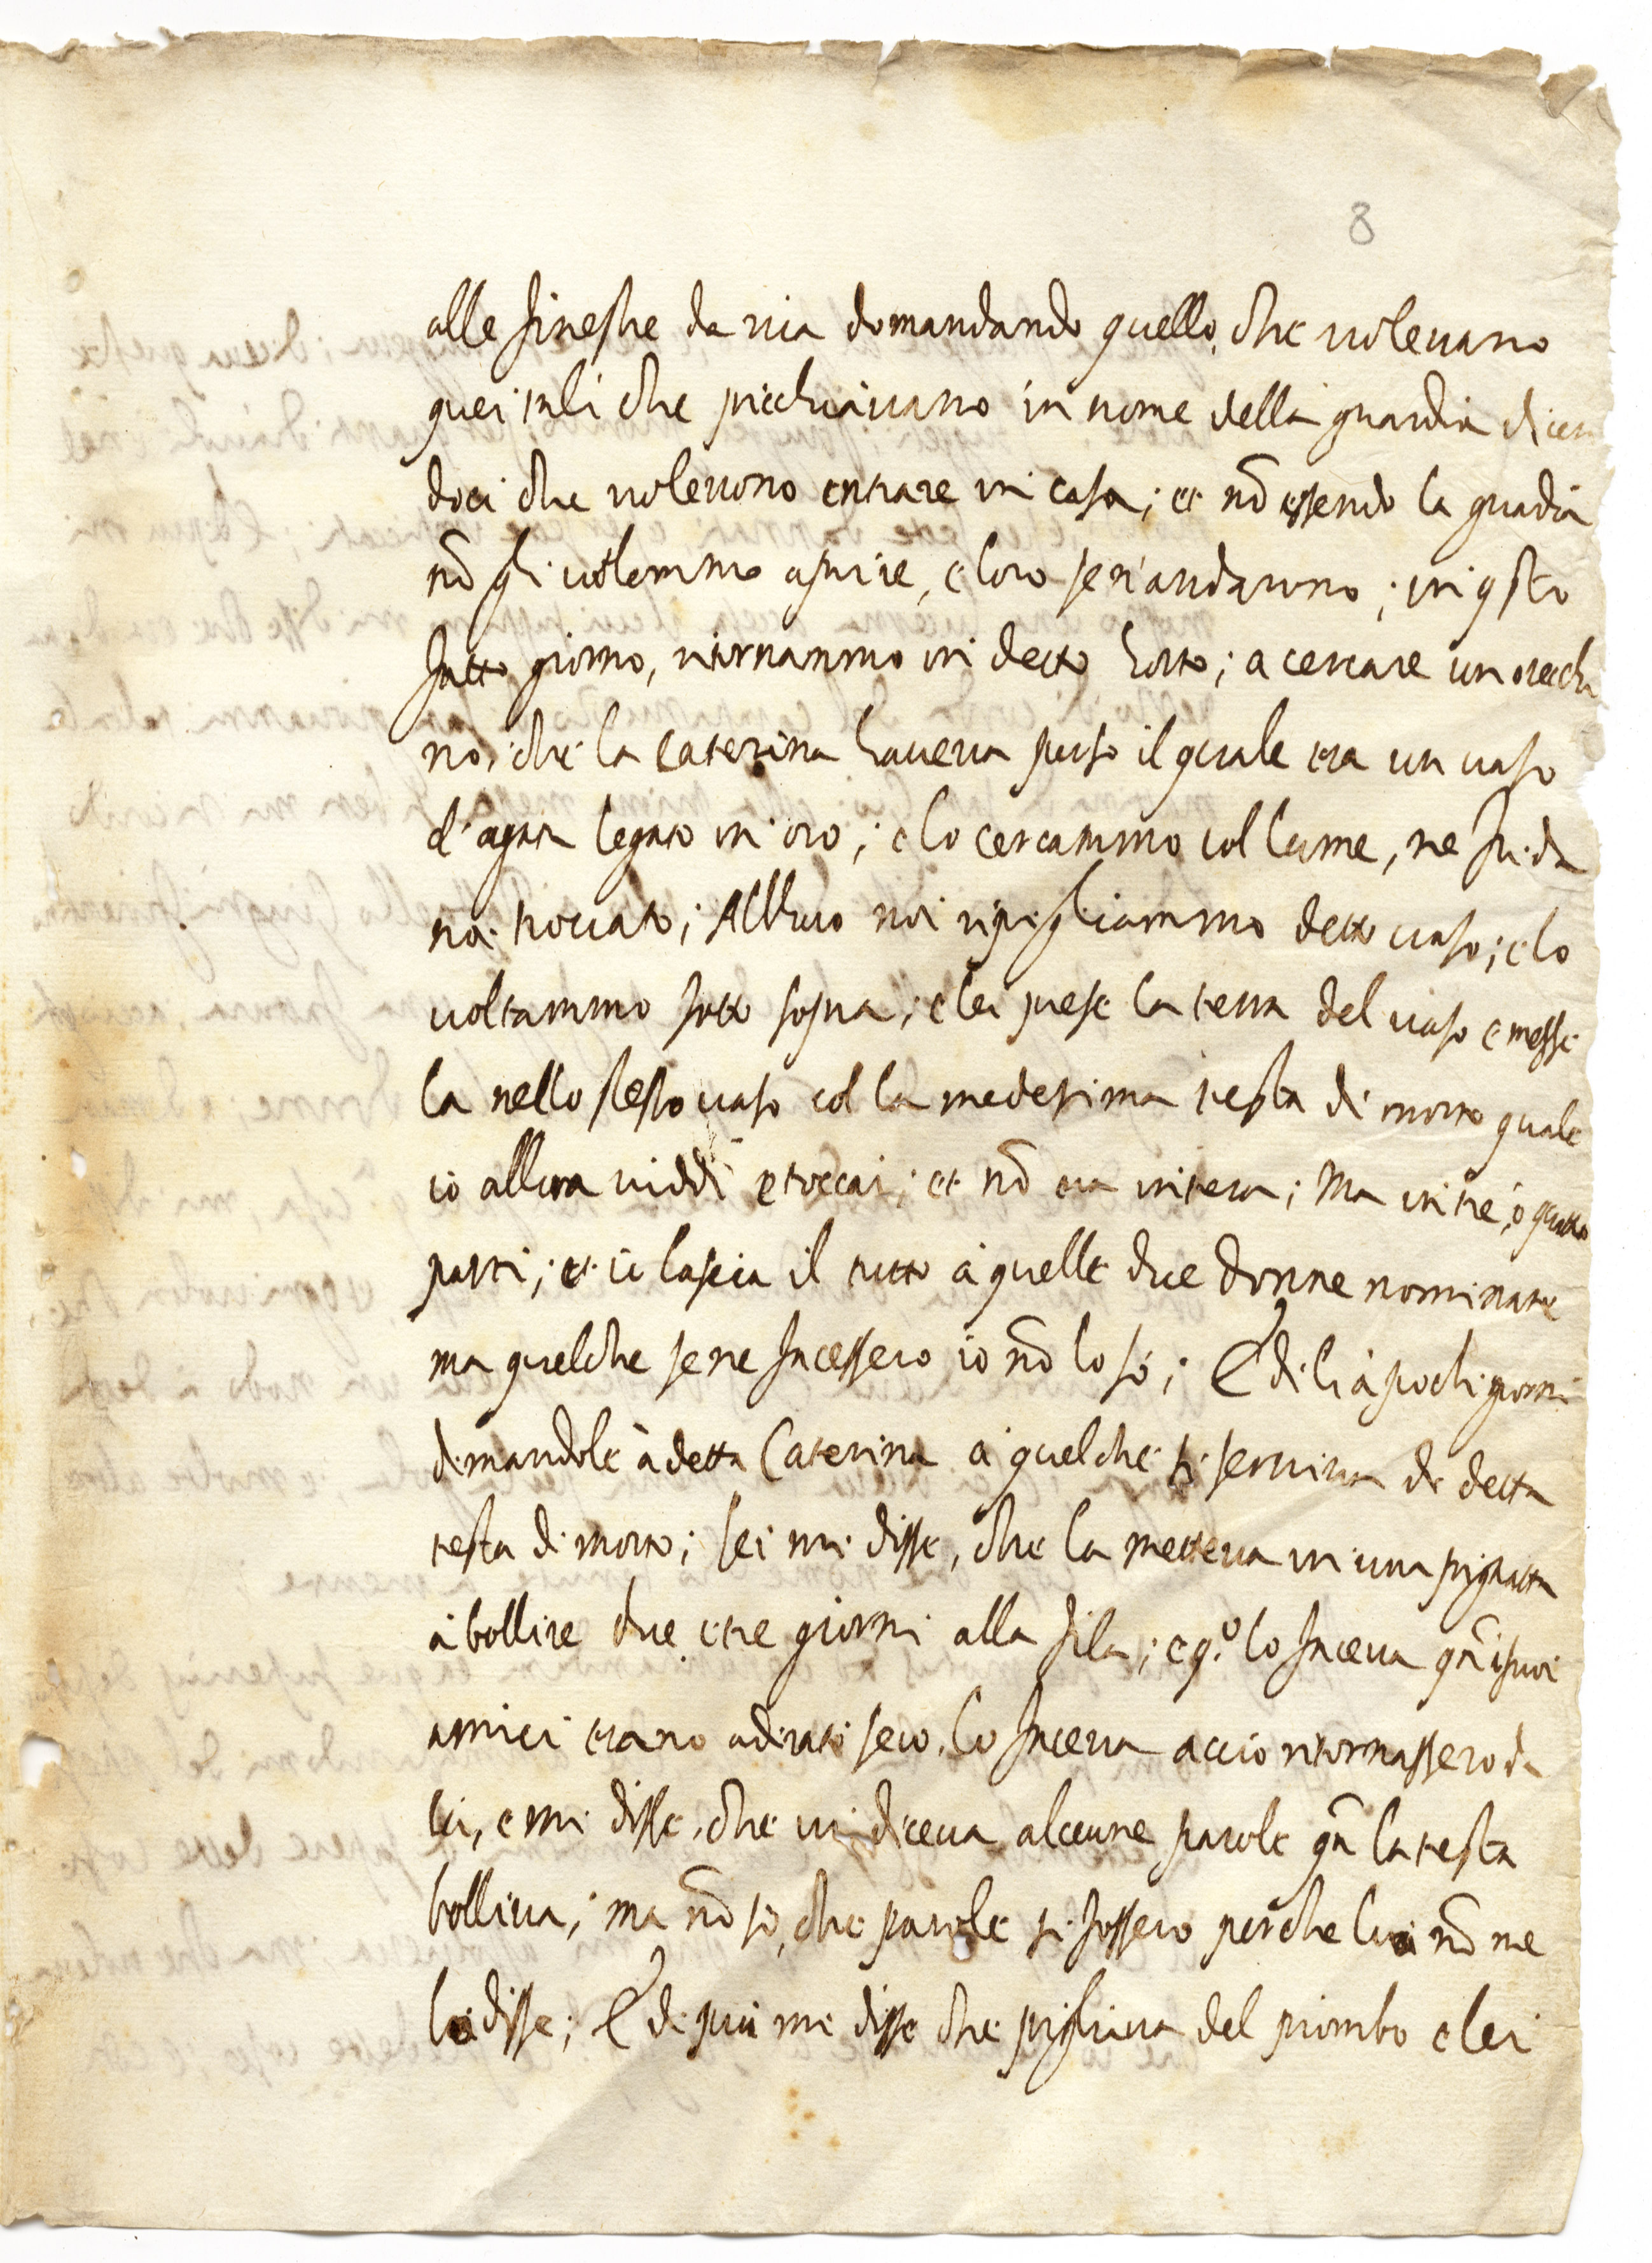 8
alle finestre da via domandando quello, che volevano
quei tali che picchiavano in nome della guardia dicen
doci che volevono entrare in casa; et nō essendo la guadia
nō gli volemmo aprire, e loro se n'andarono; in qsto
fatto giorno, ritornammo in detto horto; a cercare un orecchi
no, che la Caterina haveva perso il quale era un vaso
d'agata legato in oro; e lo cercammo col lume, ne fu da
noi trovato; All'hora noi ripigliammo detto vaso; e lo
voltammo sotto sopra, e lei prese la terra del vaso e messe
la nello stesso vaso col la medesima testa di morto quale
io allora viddi e toccai; et nō era intera; Ma in tre, o quattro
parti; et io lascia il tutto à quelle due donne nominate
ma quelche se ne facessero io nō lo sò; E di li à pochi giorni
dimandole à detta Caterina a quelche si serviva di detta
testa di morto; lei mi disse, che la metteva in una pignatta
à bollire due e tre giorni alla fila; e q.º lo faceva qñ i suoi
amici erano adirati seco, lo faceva accio ritornassero da
lei, e mi disse, che vi diceva alcune parole qñ la testa
bolliva; ma nō so, che parole si fossero perche lei nō me
le disse; E di più mi disse che pigliava del piombo e lei